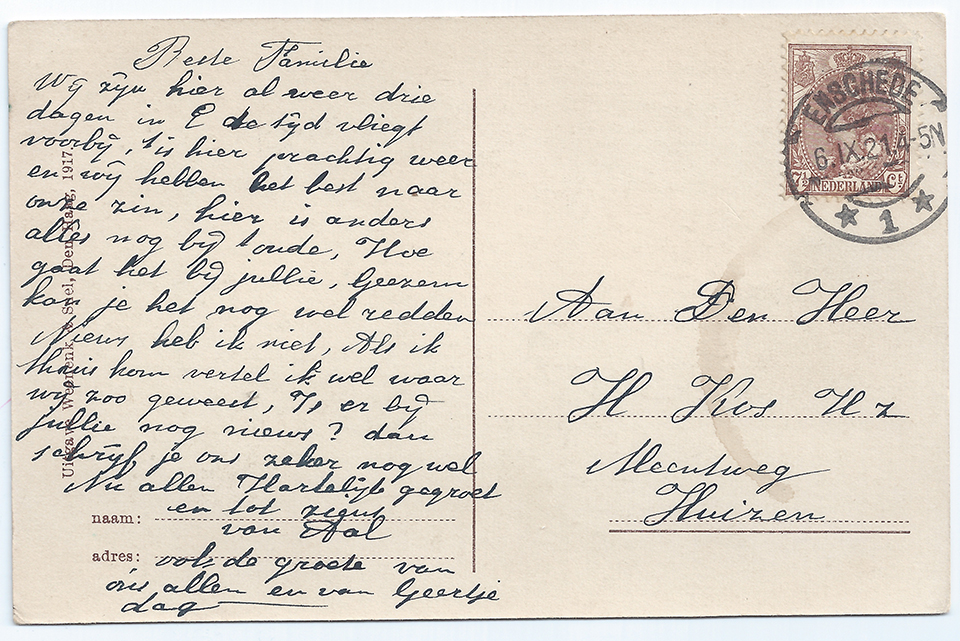 Beste Familie
Wij zijn hier al weer drie
dagen in E de tijd vliegt
voorbij, 't is hier prachtig weer
en wij hebben het best naar
onze zin, hier is anders
alles nog bij 't oude, Hoe
gaat het bij jullie, Geezem
kan je het nog wel redden
Nieuws heb ik niet, Als ik
thuis kom vertel ik wel waar
wij zoo geweest, Is er bij
jullie nog nieuws? dan
schrijf je ons zeker nog wel
Nu allen Hartelijk gegroet
en tot ziens
van Aal
ook de groete van
ons allen en van Geertje
dag
naam:
adres:
Uitgave Weenenk & Snel, Den Haag, 1917
ENSCHEDE
6.IX.21.4-5N
1
7½ Ct
NEDERLAND
Aan Den Heer
H Kos Hz
Meentweg
Huizen